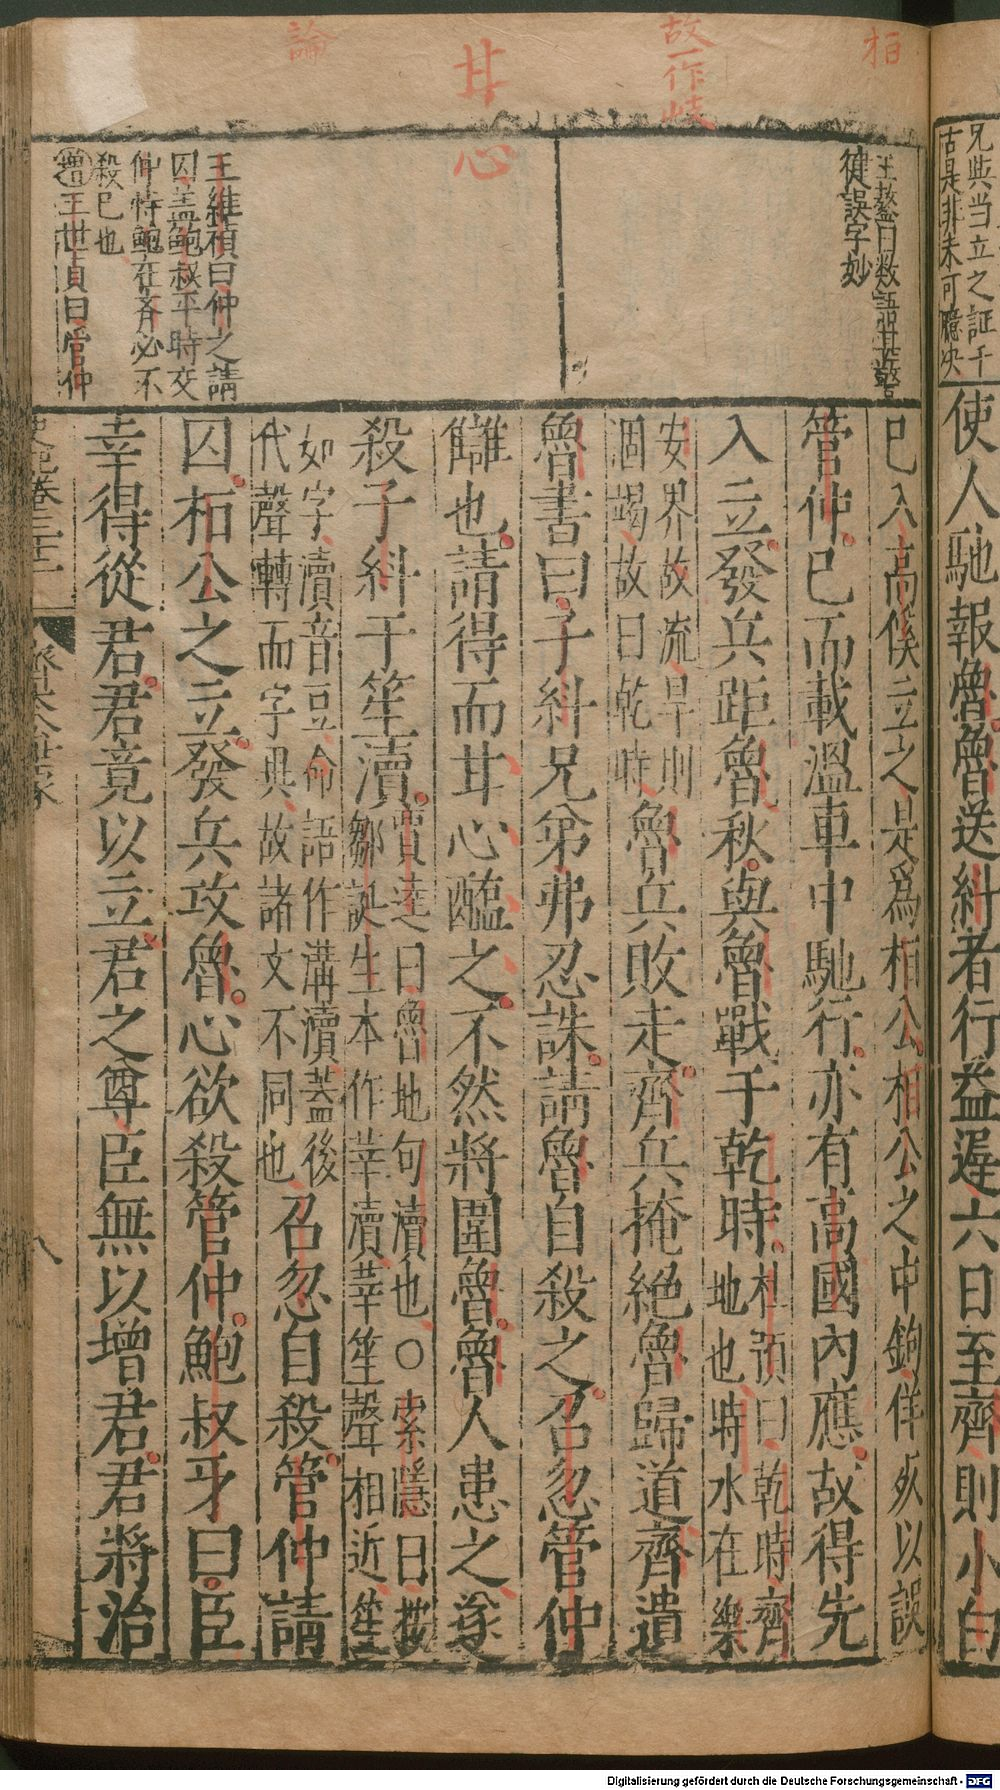 柏
故一作岐
甘心
論
兄與当立之証千
古是非未可臆决
使人馳報魯魯送糾者行益遲六日至齊則小白
王鏊曰数語甚警
健誤字妙
已入高傒立之是為桓公桓公之中鉤佯死以誤
管仲已而載溫車中馳行亦有高國內應故得先
入立發兵距魯秋與魯戰于乾時杜預曰乾時齊
地也時水在樂
安界故流旱則
涸竭故曰乾時魯兵敗走齊兵掩絕魯歸道齊遺
魯書曰子糾兄弟弗忍誅請魯自殺之召忽管仲
讎也請得而甘心醢之不然將圍魯魯人患之遂
殺子糾于笙瀆賈逵曰魯地句瀆也○索隱曰按
鄒誕生本作莘瀆莘笙聲相近笙
如字瀆音豆命語作溝瀆蓋後
代聲轉而字異故諸文不同也召忽自殺管仲請
王維禎曰仲之請
囚盖鮑叔平時交
仲恃鮑在齐必不
殺已也
増王世貞曰管仲
囚桓公之立發兵攻魯心欲殺管仲鮑叔牙曰臣
幸得從君君竟以立君之尊臣無以增君君將治
史記卷三十二
齊太公世家
八
Digitalisierung gefördert durch die Deutsche Forschungsgemeinschaft - DFG